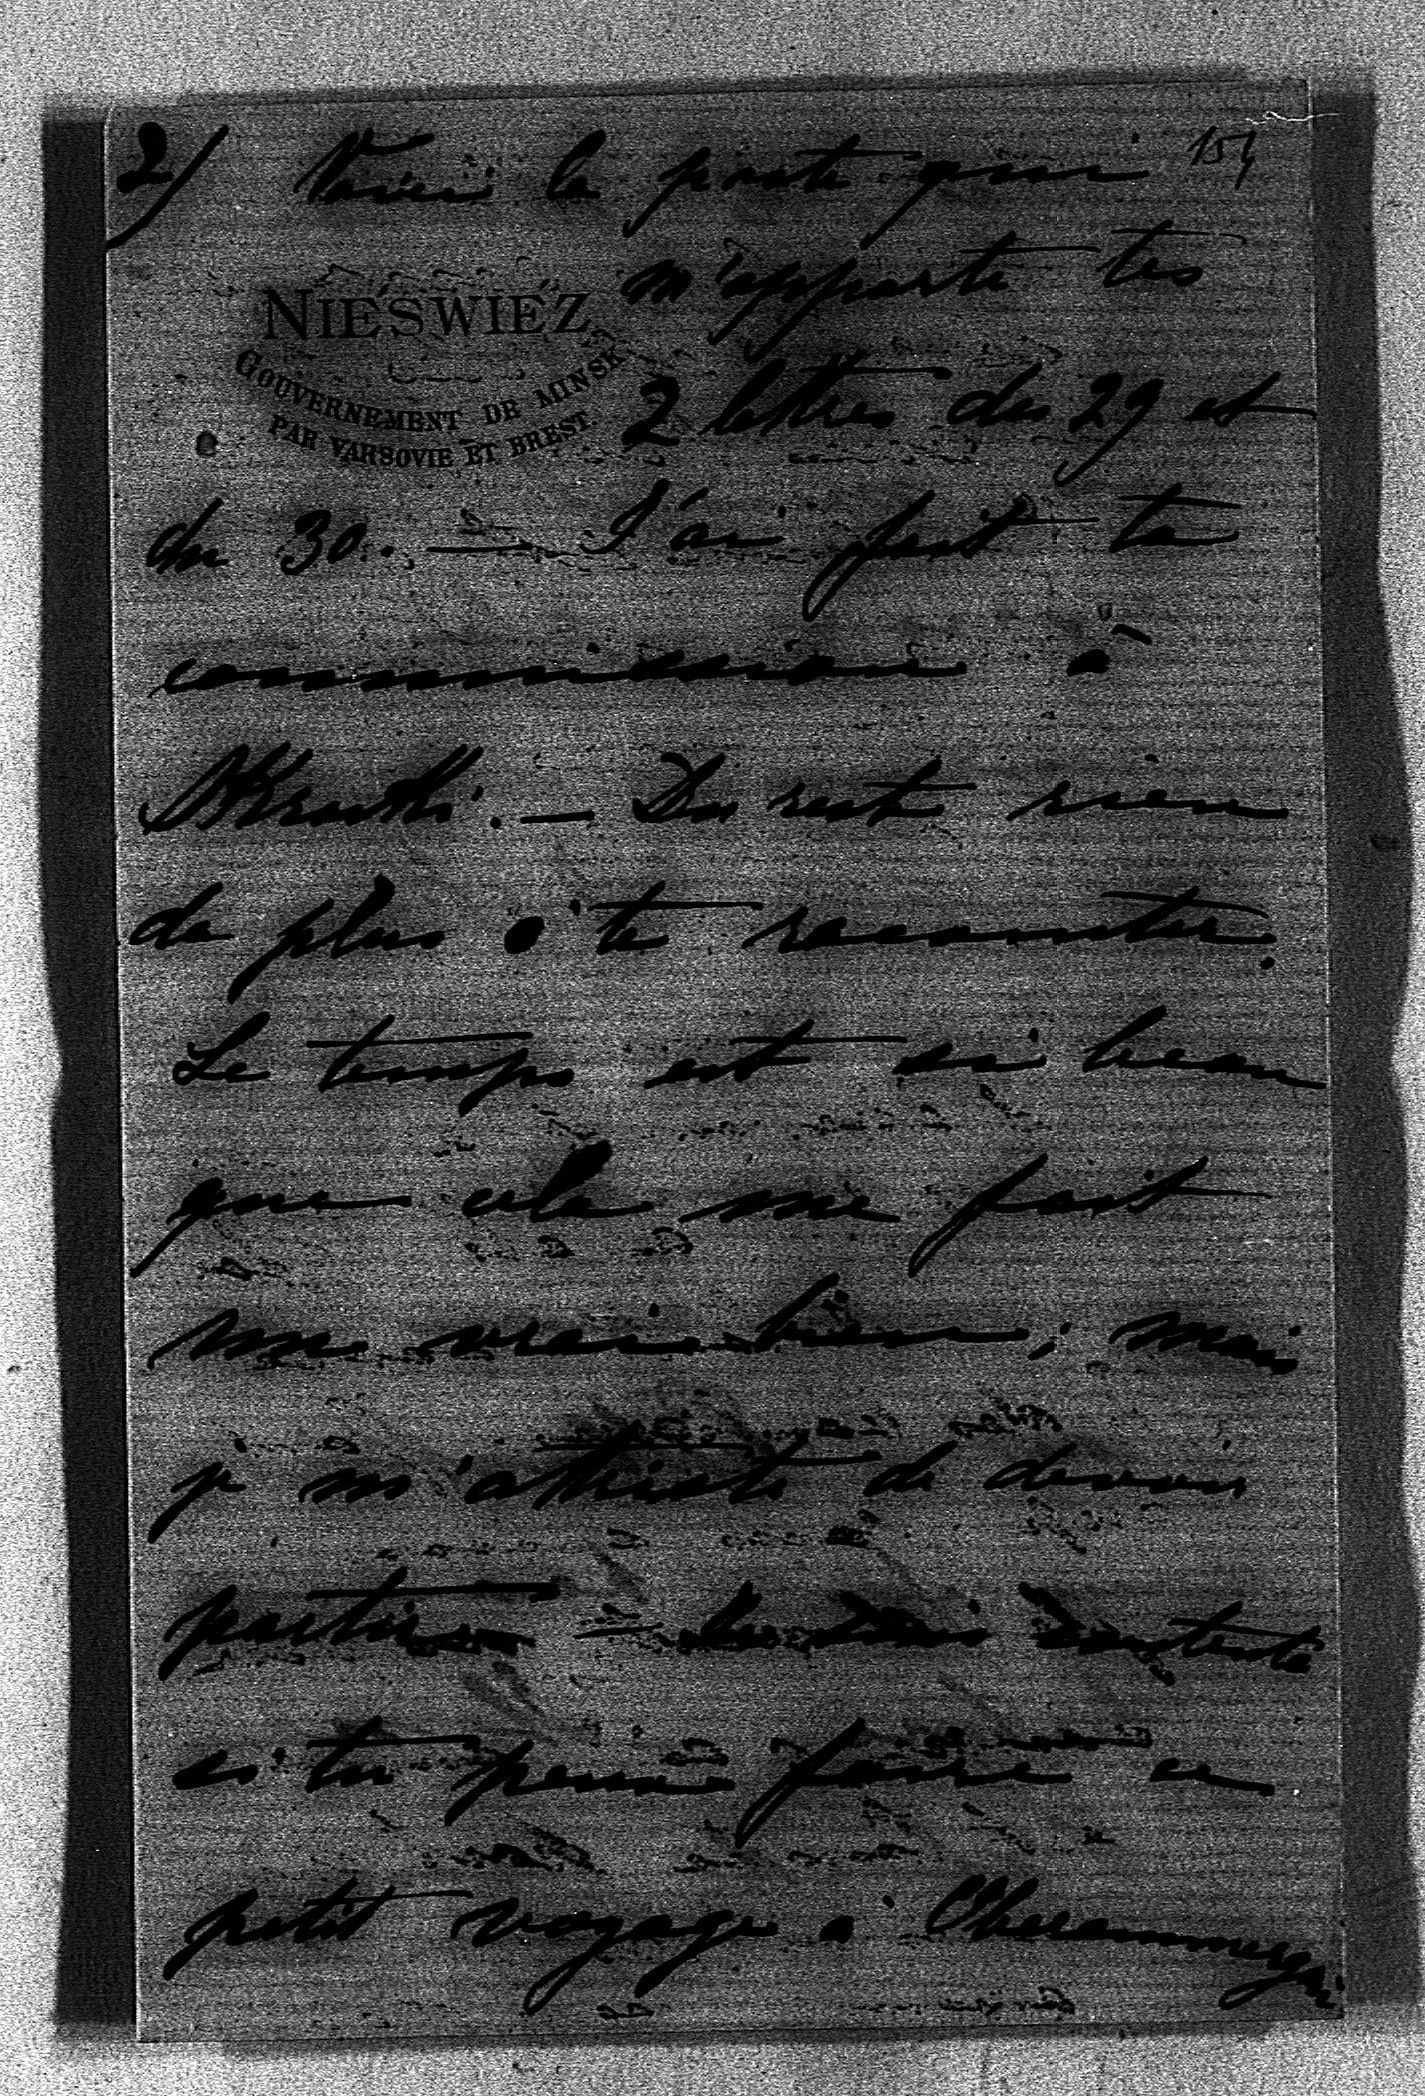 2) Voici la poste qui 154
m'apporte tes
NIEŚWIEŹ
GOUVERNEMENT DE MINSK
PAR VARSOVIE ET BREST.
2 lettres du 29 et
du 30. — J'ai fait ta
commission à
— Du reste rien
de plus à te raconter.
Le temps est si beau
que cela me fait
vrai bien; mais
je m'attriste de devoir
partir —
si tu peux faire ce
petit voyage à Oberammergau